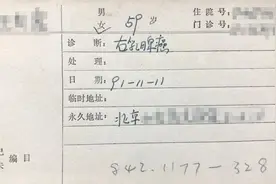 男
女 59 岁
住院号:
门诊号:
诊断: 右乳腺癌
处理:
日期: 91-11-11
临时地址:
永久地址: 北京
编目
842.1177-328